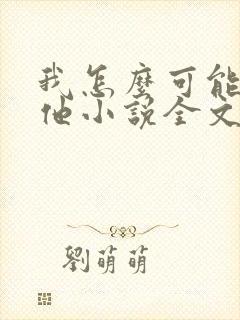 我怎麼可能
他小說全文
劉萌萌